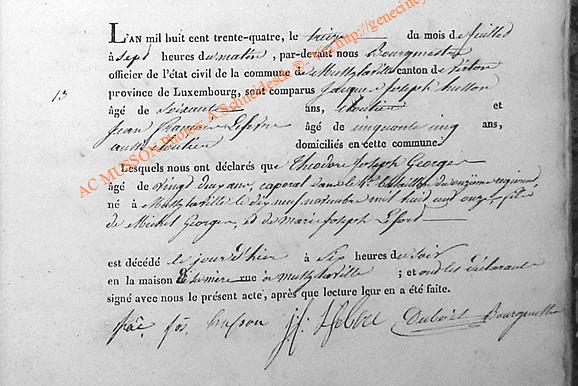 L'AN mil huit cent trente-quatre, le treize du mois de juillet
à sept heures du matin, par-devant nous Bourgmestre
officier de l'état civil de la commune de Mussy-la-ville canton de Virton
province de Luxembourg, sont comparus Jacques Joseph husson
13
âgé de soixante ans, cloutier et
Jean François Lefevre âgé de cinquante cinq ans,
aussi cloutier domiciliés en cette commune.
Lesquels nous ont déclarés que Théodore Joseph Georges
âgé de vingt deux ans, caporal dans le 4e bataillon du onzième régiment,
né à Mussy-la-ville le dix neuf novembre mil huit cent onze, fils
de Michel Georges, et de marie Joseph Lefort
est décédé le jour d'hier à six heures du soir
en la maison de sa mère rue de mussy-la-ville ; et ont les déclarants
signé avec nous le présent acte, après que lecture leur en a été faite.
husson J f Lefevre Bourgmestre
AC MUSSON Photos: A Schneidesch ®- Voir http://genecine